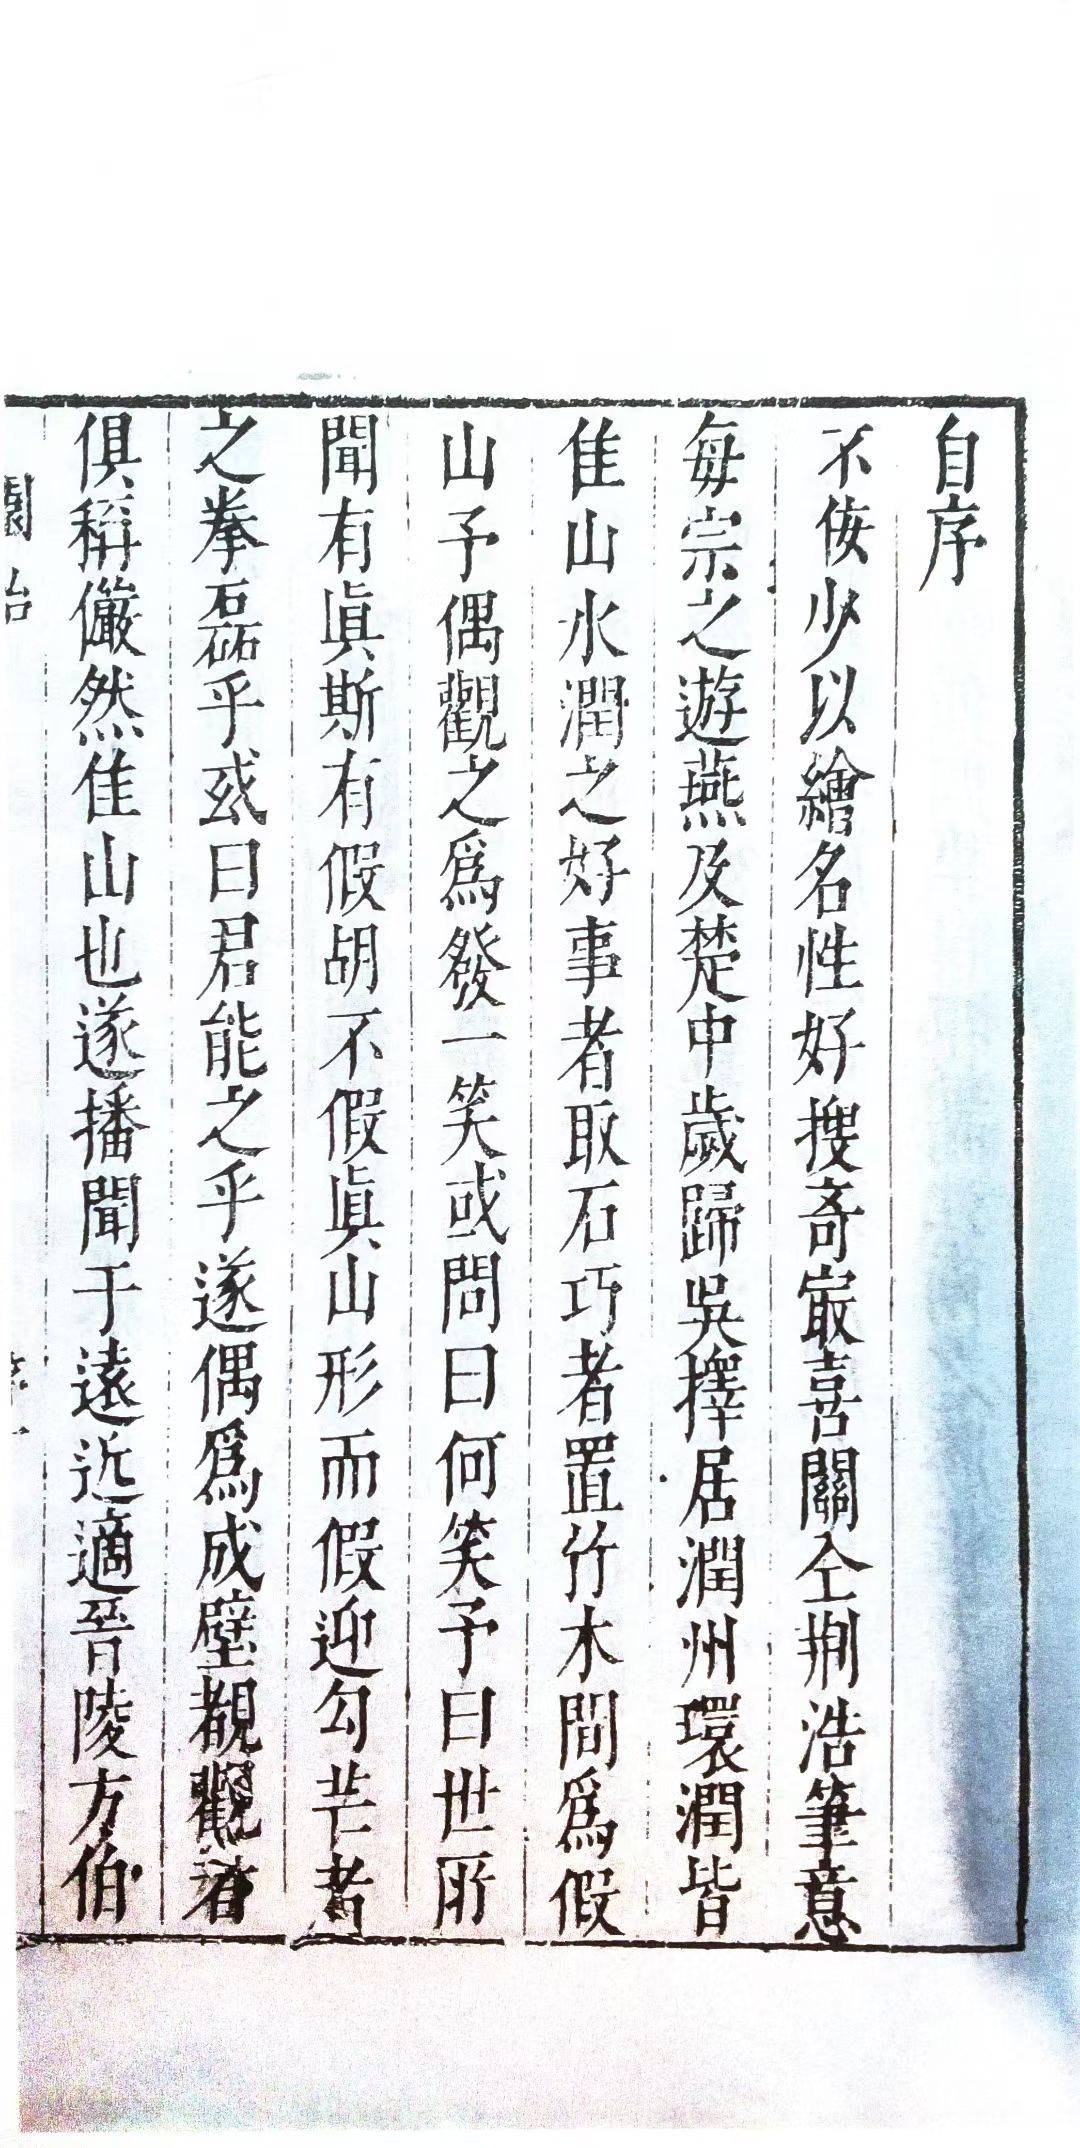 自序
不佞少以繪名性好搜奇最喜關仝荊浩筆意
每宗之遊燕及楚中歲歸吳擇居潤州環潤皆
佳山水潤之好事者取石巧者置竹木間為假
山予偶觀之為發一笑或問曰何笑予曰世所
聞有眞斯有假胡不假眞山形而假迎勾芒者
之拳磊乎或曰君能之乎遂偶為成壁覩觀者
俱稱儼然佳山也遂播聞于遠近適晉陵方伯
園冶